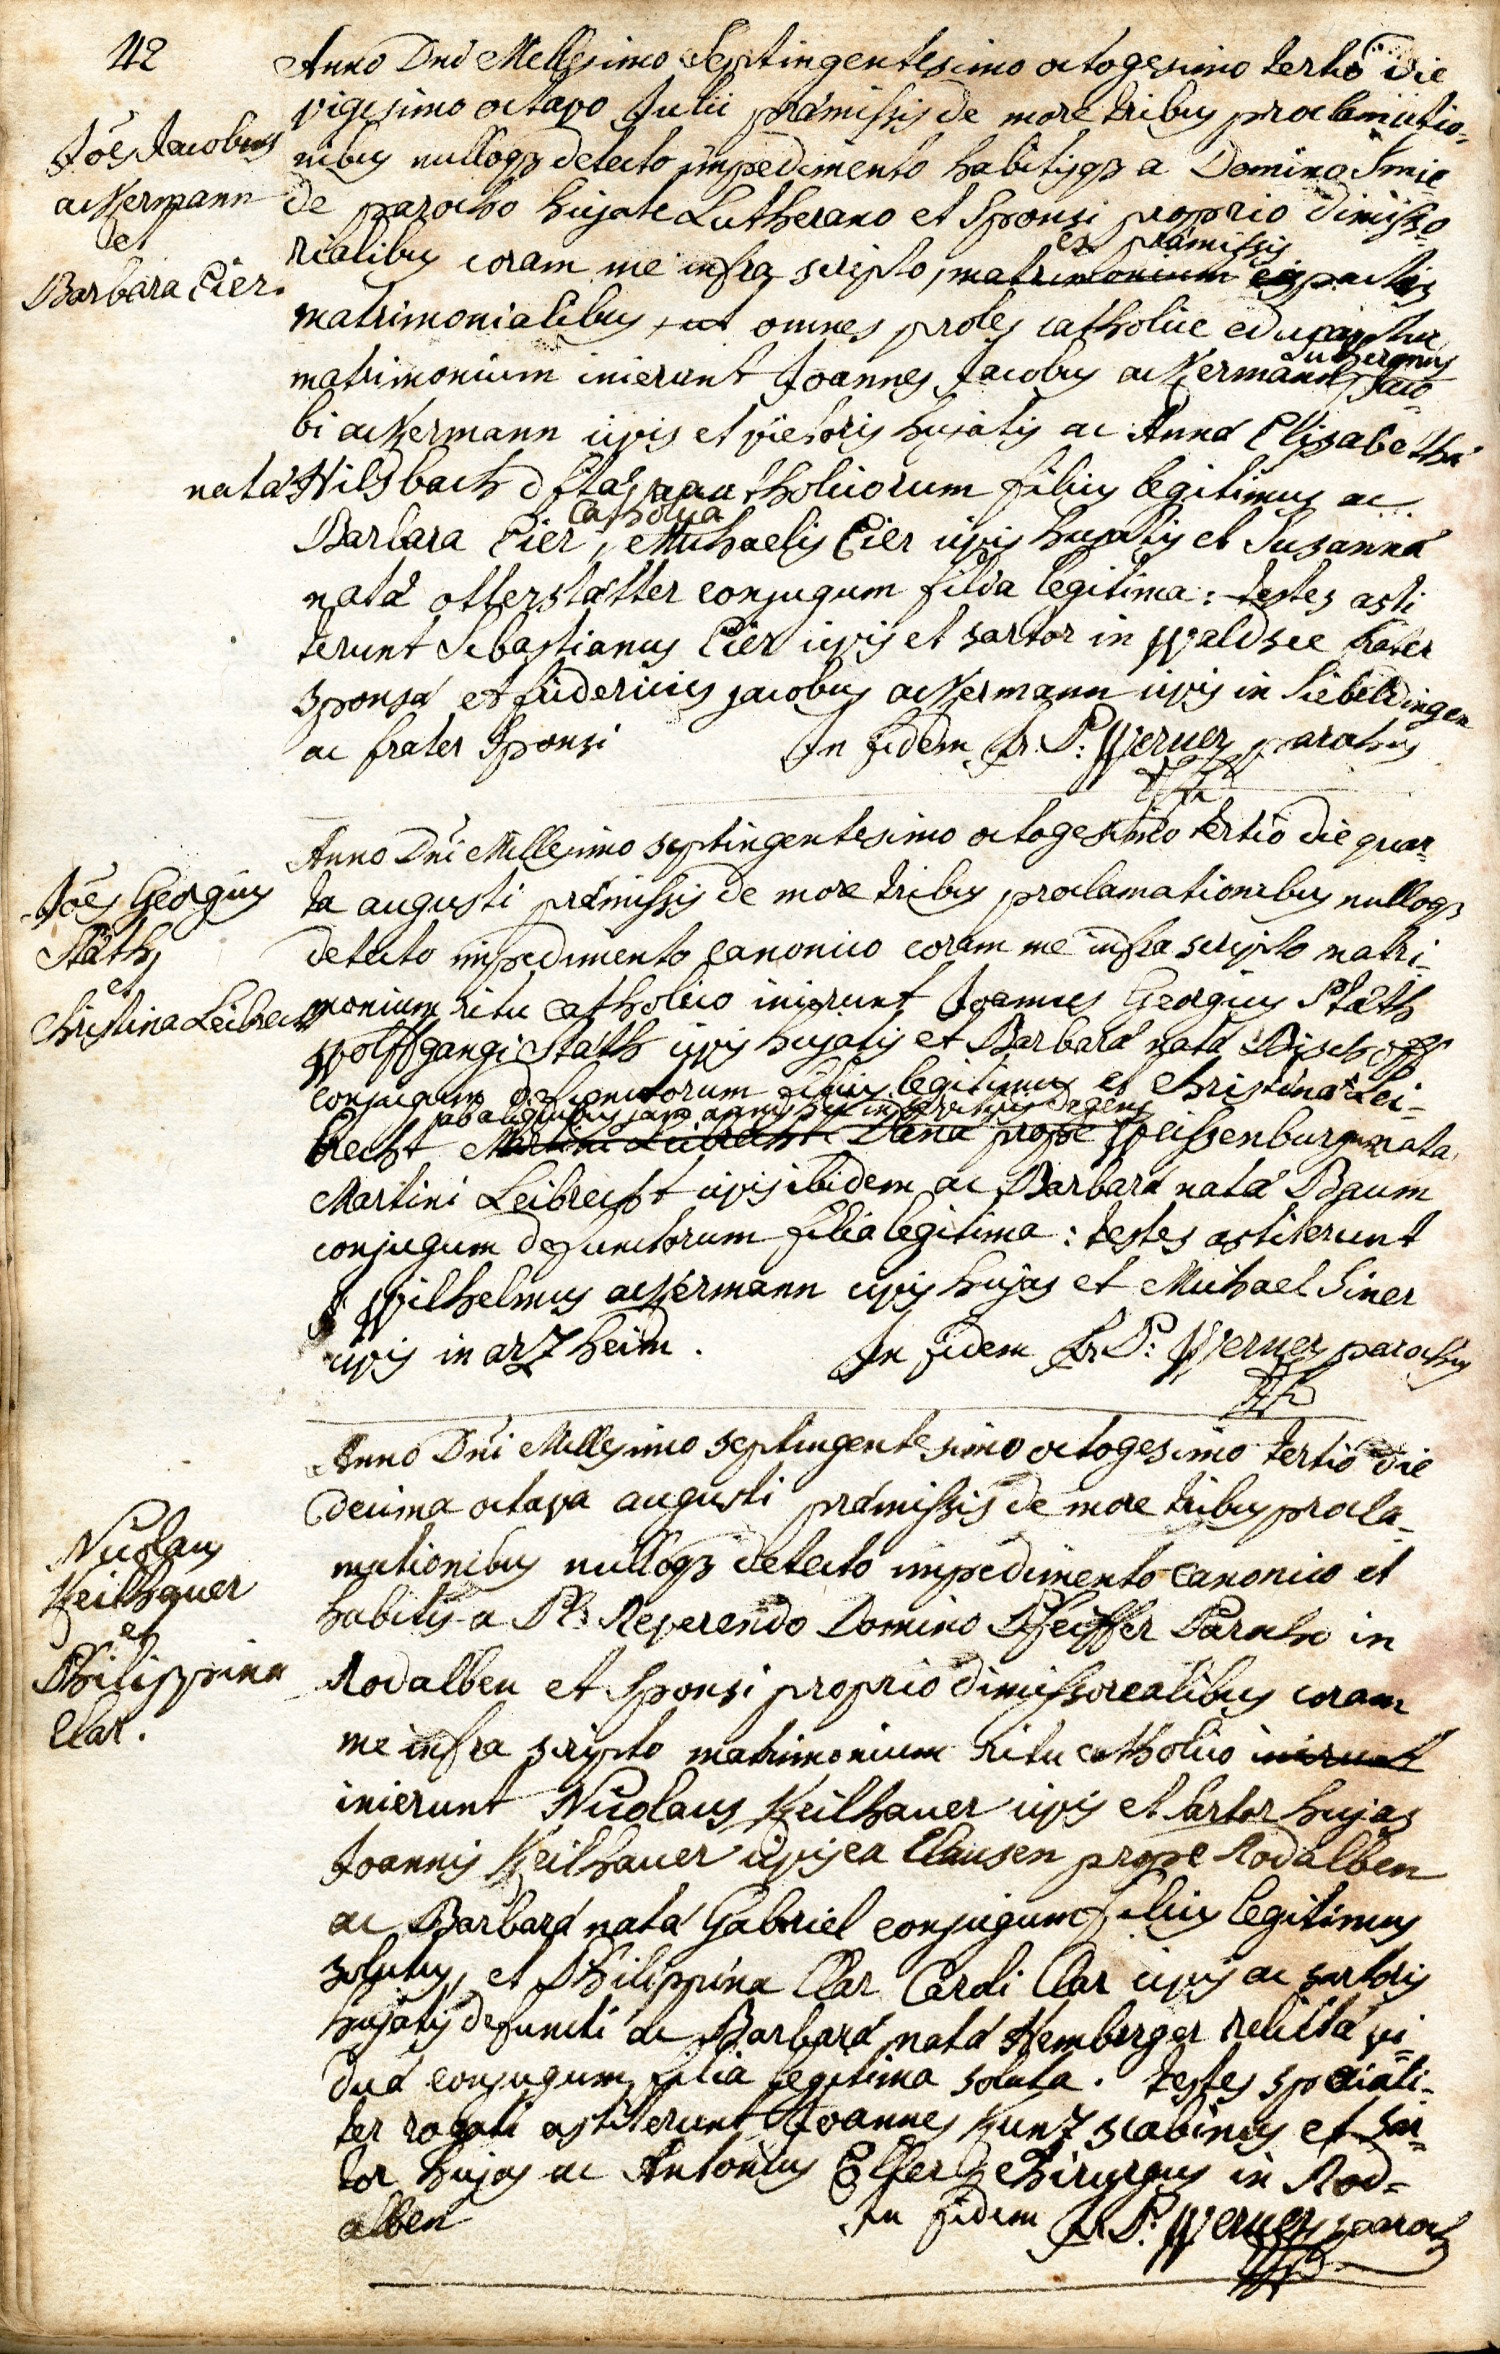 42
Joēs Jacobus
ackermann
et
Barbara Eier.
Anno Dni Millesimo Septingentesimo octogesimo tertio die
vigesimo octavo Julii praemissis de more tribus proclamatio-
nibus nulloqz detecto impedimento habitisqz a Domino
de parocho hujate Lutherano et Sponsi proprio dimisso-
rialibus coram me infra scripto, matrimonium ex praemissis pactis
matrimonialibus, ut omnes proles catholice educantur
matrimonium inierunt Joannes Jacobus ackermann Lutheranus, Jaco-
bi ackermann civis et vietoris hujatis ac Anna Elisabetha
nata Hilsbach filius legitimus ac
Barbara Eier, Catholica Michaelis Eier civis hujatis et Susanna
nata otterstätter conjugum filia legitima: testes asti
terunt Sebastianus Eier civis et sartor in Waldsee frater
sponsa et fridericus jacobus ackermann civis in Siebeldingen
ac frater Sponsi
In fidem fr. P: Werner parochus
Joēs Georgius
Stäth
et
Christina Leibrecht
Anno Dni Millesimo septingentesimo octogesimo tertio die quar-
ta augusti praemissis de more tribus proclamationibus nulloqz
detecto impedimento canonico coram me infra scripto matri-
monium ritu catholico inierunt Joannes Georgius Stäth
Wolffgangi Stäth civis hujatis et Barbara nata Bischoff
conjugum defunctorum filius legitimus et Christina Lei-
ab aliquibus jam annis hic in servitiis degens
brecht Martini Leibrecht Dana prope Weissenburgum nata
Martini Leibrecht civis ibidem ac Barbara nata Baum
conjugum defunctorum filia legitima: testes astiterunt
Wilhelmus ackermann civis hujas et Michael Siner
civis in arzheim.
In fidem fr. P: Werner parochus
Nicolaus
Keilhauer
et
Philippina
Clar.
Anno Dni Millesimo septingentesimo octogesimo tertio die
decima octava augusti praemissis de more tribus procla-
mationibus nulloqz detecto impedimento canonico et
habitis a Pl. Reverendo Domino Pfeiffer Parocho in
Rodalben et Sponsi proprio dimissorealibus coram
me infra scripto matrimonium ritu catholico inierunt
inierunt Nicolaus Keilhauer civis et sartor hujas
Joannis Keilhauer civis ex Clausen prope Rodalben
ac Barbara nata Gabriel conjugum filius legitimus
solutus, et Philippina Clar Caroli Clar civis ac sartoris
hujatis defuncti ac Barbara nata Hemberger relicta vi-
dua conjugum filia legitima soluta. testes speciali-
ter rogati astiterunt Joannes Kunz scabinus et sar-
tor hujas ac Antonius Chirurgus in Rod-
alben
In fidem fr. P: Werner paroch